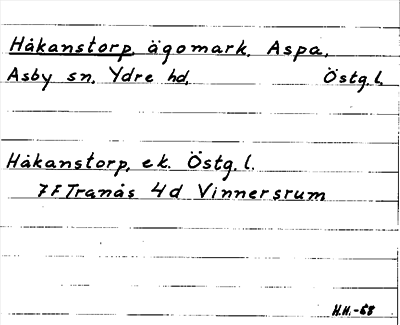 Håkanstorp, ägomark, Aspa,
Asby sn, Ydre hd, Östg.l.
Håkanstorp, ek. Östg.l.
7F Tranås 4d Vinnersrum
H.H.-58